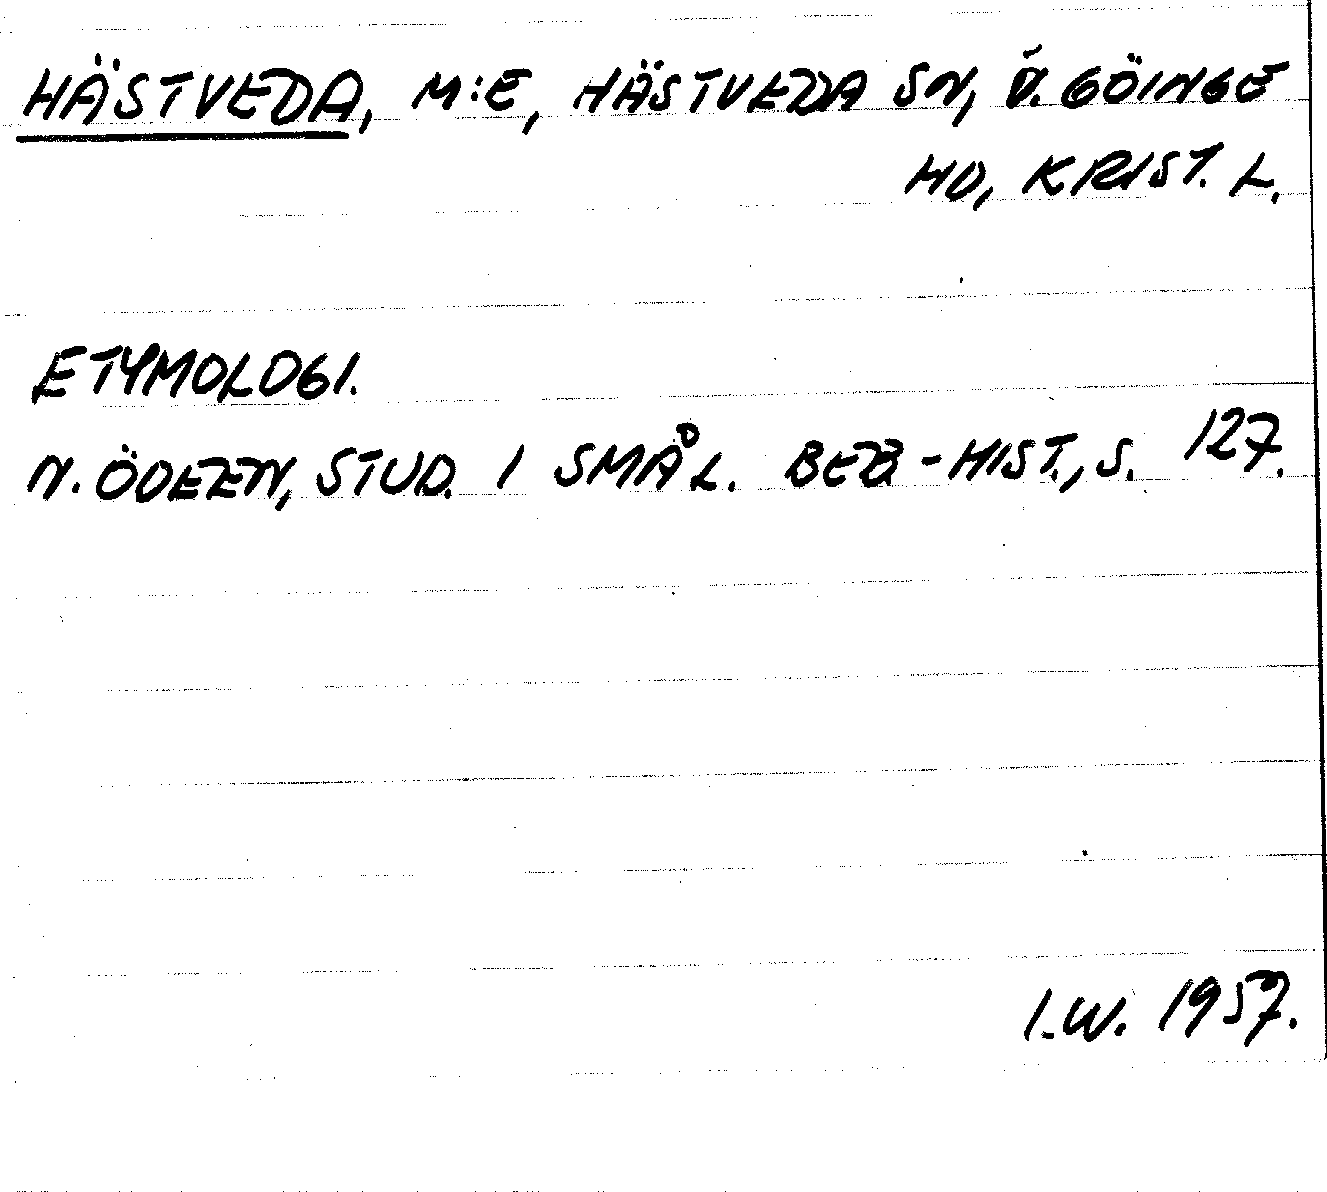 HÄSTVEDA, M:E, HÄSTVEDA SN, V. GÖINGE
HD, KRIST. L.
ETYMOLOGI.
N. ÖDEEN, STUD. I SMÅL. BEB-HIST., S. 127.
I.W. 1957.